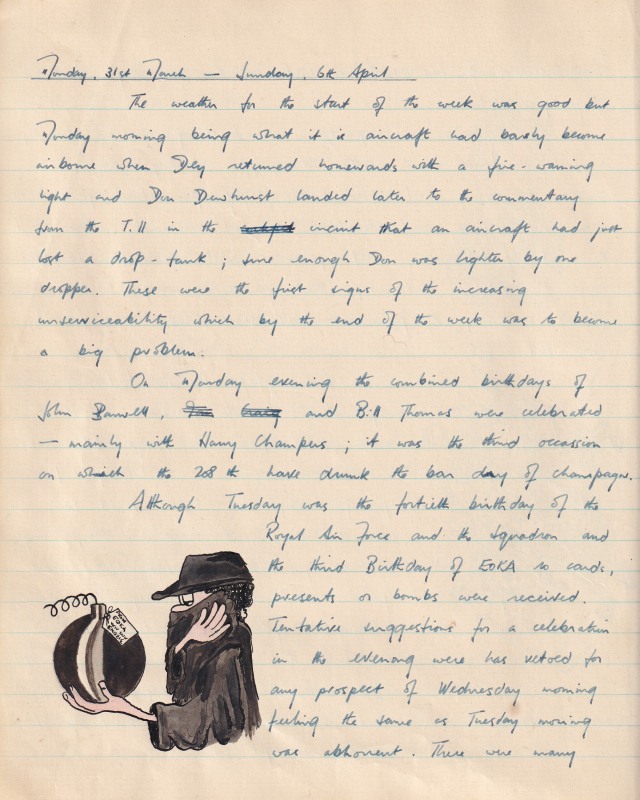 Monday, 31st March — Sunday, 6th April
The weather for the start of the week was good but
Monday morning being what it is aircraft had barely become
airborne when Dey returned homewards with a fire-warning
light and Don Dewhurst landed later to the commentary
from the T.11 in the circuit that an aircraft had just
lost a drop-tank; sure enough Don was lighter by one
dropper. These were the first signs of the increasing
unserviceability which by the end of the week was to become
a big problem.
On Monday evening the combined birthdays of
John Barwell, Ian Craig and Bill Thomas were celebrated
— mainly with Harry Champers; it was the third occassion
on which the 208 th have drunk the bar dry of champagne.
Although Tuesday was the fortieth birthday of the
Royal Air Force and the Squadron and
the third Birthday of EOKA no cards,
presents or bombs were received.
Tentative suggestions for a celebration
in the evening were has vetoed for
any prospect of Wednesday morning
feeling the same as Tuesday morning
was abhorrent. There were many